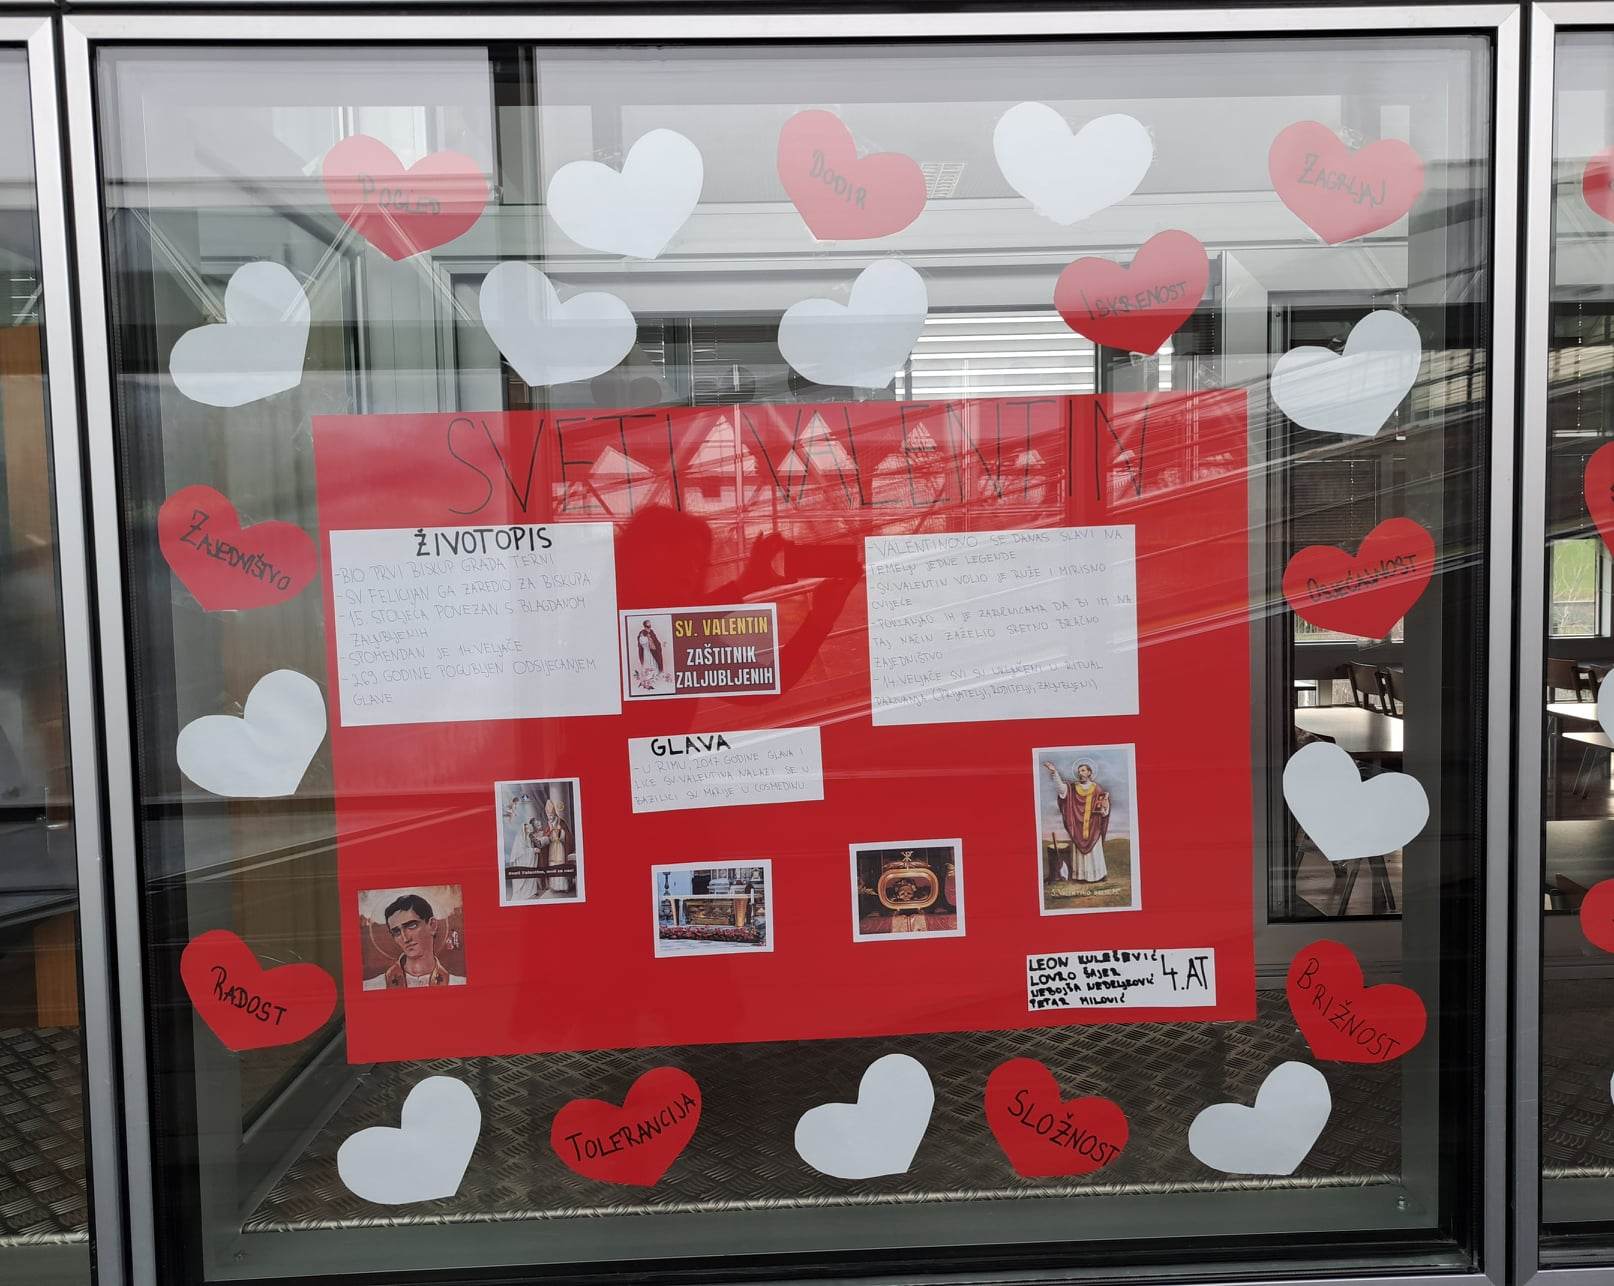 POGLED
DODIR
ZAGRLJAJ
ISKRENOST
SVETI VALENTIN
ZAJEDNIŠTVO
ŽIVOTOPIS
-BIO PRVI BISKUP GRADA TERNI
-SV. FELICIJAN GA ZAREDIO ZA BISKUPA
-15. STOLJEĆA POVEZAN S BLAGDANOM
ZALJUBLJENIH
-SPOMENDAN JE 14. VELJAČE
-269. GODINE POGUBLJEN ODSIJECANJEM
GLAVE
SV. VALENTIN
ZAŠTITNIK
ZALJUBLJENIH
-VALENTINOVO SE DANAS SLAVI NA
TEMELJU JEDNE LEGENDE
-SV. VALENTIN VOLIO JE RUŽE I MIRISNO
CVIJEĆE
-POKLANJAO IH JE ZARUČNICAMA DA BI IM NA
TAJ NAČIN ZAŽELIO SRETNO BRAČNO
ZAJEDNIŠTVO
-14. VELJAČE SVI SU UKLJUČENI U RITUAL
DARIVANJA (PRIJATELJI, RODITELJI, ZALJUBLJENI)
OSJEĆAJNOST
GLAVA
-U RIMU, 2017. GODINE GLAVA I
LICE SV. VALENTINA NALAZI SE U
BAZILICI SV. MARIJE U COSMEDINU
Sveti Valentine, moli za nas!
RADOST
LEON KULEŠEVIĆ
LOVRO ŠAJER
NEBOJŠA NEDELJKOVIĆ
PETAR MILOVIĆ
4. AT
BRIŽNOST
TOLERANCIJA
SLOŽNOST